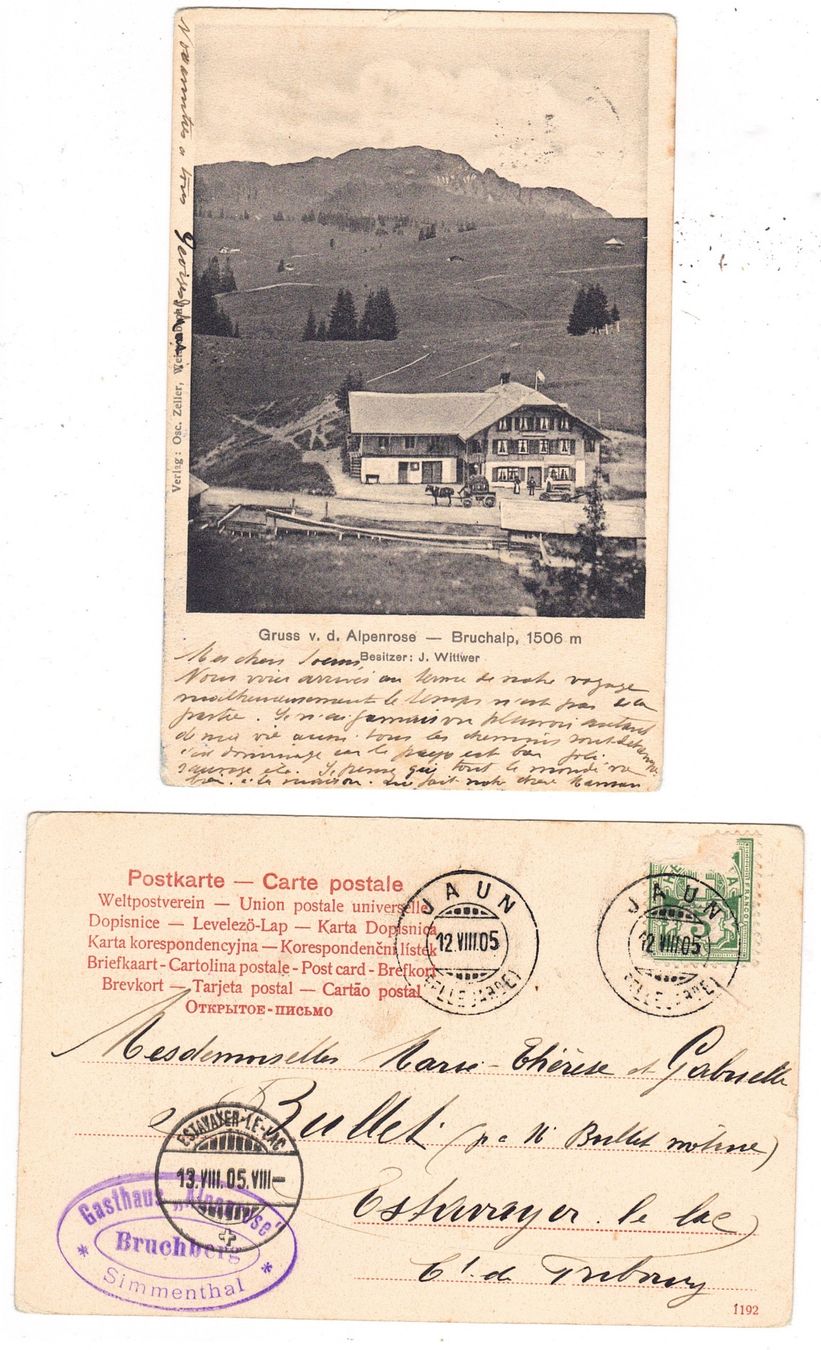 Verlag: Osc. Zeller,
Gruss v. d. Alpenrose — Bruchalp, 1506 m
Besitzer: J. Wittwer
Mes chers
Nous voici arrivés au terme de notre voyage
malheureusement le temps n'est pas de la
partie. Je n'ai jamais vu pleuvoir autant
de ma vie aussi tous les chemins sont
c'est dommage car le pays est bien joli.
sauvage etc. Je pense que tout le monde va
bien à la maison. Que fait notre chère Maman
Postkarte — Carte postale
Weltpostverein — Union postale universelle
Dopisnice — Levelező-Lap — Karta Dopisnica
Karta korespondencyjna — Korespondenční lístek
Briefkaart - Cartolina postale - Post card - Brefkort
Brevkort — Tarjeta postal — Cartão postal
Открытое-письмо
JAUN
12 VIII.05
(BELLEGARDE)
JAUN
12 VIII.05
(BELLEGARDE)
FRANCO
Mesdemoiselles Marie-Thérèse et Gabrielle
Bullet
Estavayer le lac
Ct. de Fribourg
ESTAVAYER-LE-LAC
13.VIII.05.VIII—
Gasthaus „Alpenrose"
Bruchberg
* Simmenthal *
1192